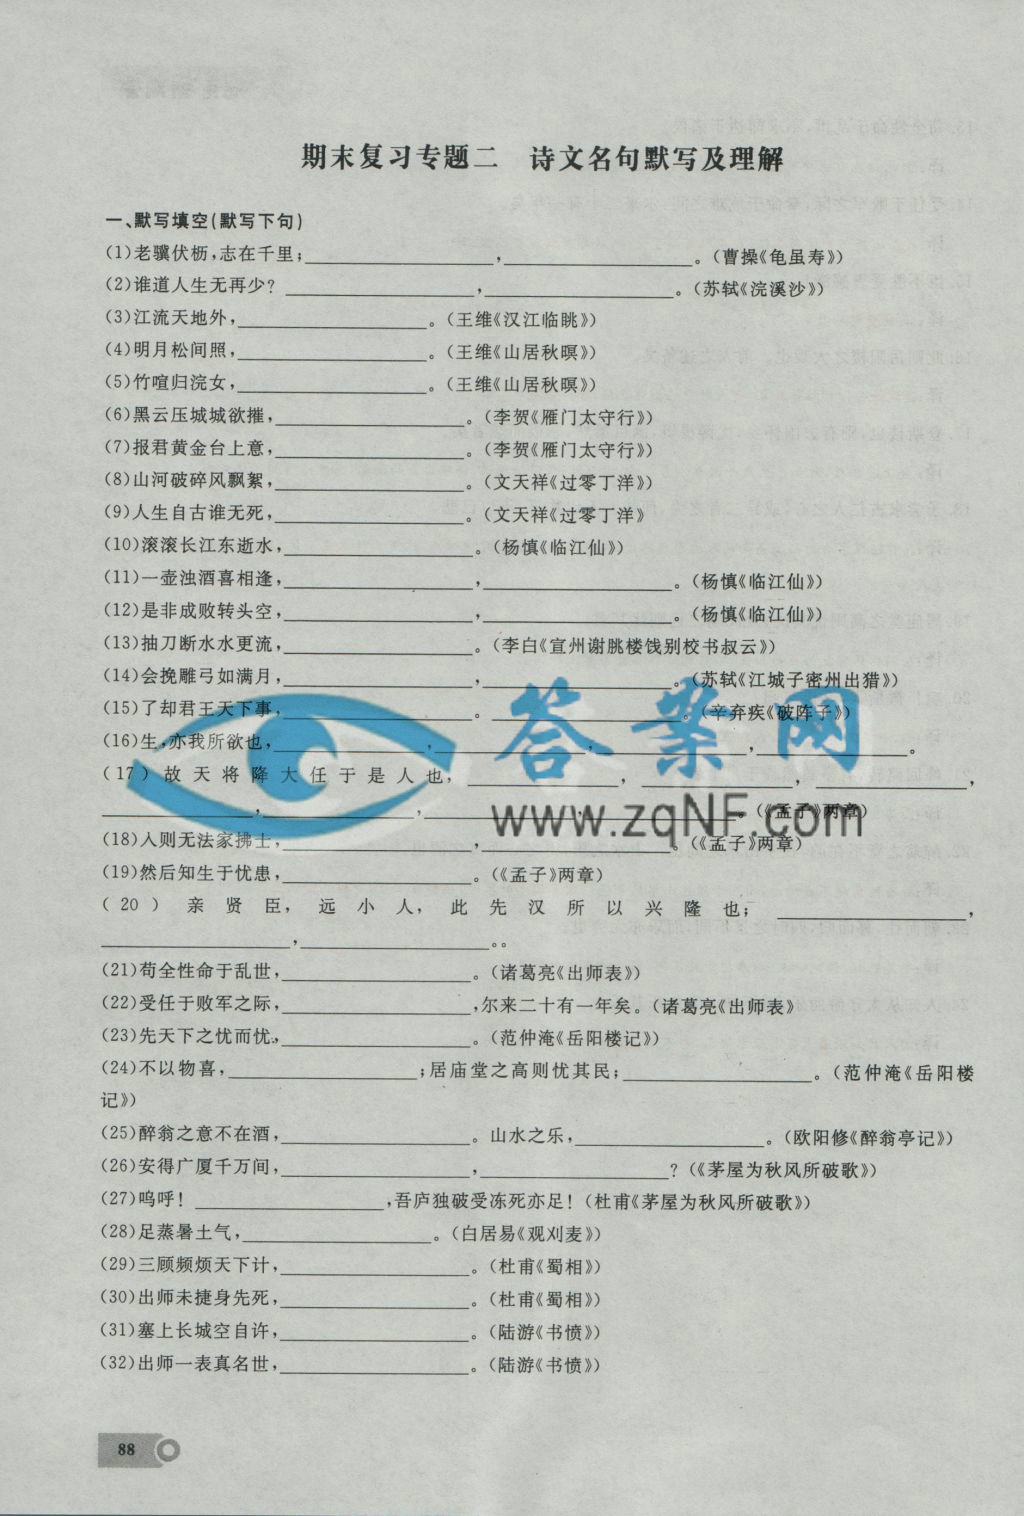 期末复习专题二 诗文名句默写及理解
一、默写填空(默写下句)
(1)老骥伏枥,志在千里;____,____。(曹操《龟虽寿》)
(2)谁道人生无再少? ____,____。(苏轼《浣溪沙》)
(3)江流天地外,____。(王维《汉江临眺》)
(4)明月松间照,____。(王维《山居秋暝》)
(5)竹喧归浣女,____。(王维《山居秋暝》)
(6)黑云压城城欲摧,____。(李贺《雁门太守行》)
(7)报君黄金台上意,____。(李贺《雁门太守行》)
(8)山河破碎风飘絮,____。(文天祥《过零丁洋》)
(9)人生自古谁无死,____。(文天祥《过零丁洋》
(10)滚滚长江东逝水,____。(杨慎《临江仙》)
(11)一壶浊酒喜相逢,____,____。(杨慎《临江仙》)
(12)是非成败转头空,____,____。(杨慎《临江仙》)
(13)抽刀断水水更流,____。(李白《宣州谢朓楼饯别校书叔云》)
(14)会挽雕弓如满月,____,____。(苏轼《江城子密州出猎》)
(15)了却君王天下事,____。____。(辛弃疾《破阵子》)
(16)生,亦我所欲也,____,____,____,____。
(17)故天将降大任于是人也,____,____,____,
____,____,____。(《孟子》两章)
(18)人则无法家拂士,____,____。(《孟子》两章)
(19)然后知生于忧患,____。(《孟子》两章)
(20)亲贤臣,远小人,此先汉所以兴隆也;____,
____,____。。
(21)苟全性命于乱世,____。(诸葛亮《出师表》)
(22)受任于败军之际,____,尔来二十有一年矣。(诸葛亮《出师表》
(23)先天下之忧而忧,____。(范仲淹《岳阳楼记》)
(24)不以物喜,____;居庙堂之高则忧其民;____。(范仲淹《岳阳楼
记》)
(25)醉翁之意不在酒,____。山水之乐,____。(欧阳修《醉翁亭记》)
(26)安得广厦千万间,____,____?(《茅屋为秋风所破歌》)
(27)呜呼!____,吾庐独破受冻死亦足!(杜甫《茅屋为秋风所破歌》)
(28)足蒸暑土气,____。(白居易《观刈麦》)
(29)三顾频烦天下计,____。(杜甫《蜀相》)
(30)出师未捷身先死,____。(杜甫《蜀相》)
(31)塞上长城空自许,____。(陆游《书愤》)
(32)出师一表真名世,____。(陆游《书愤》)
88
答案网
www.zqNF.com